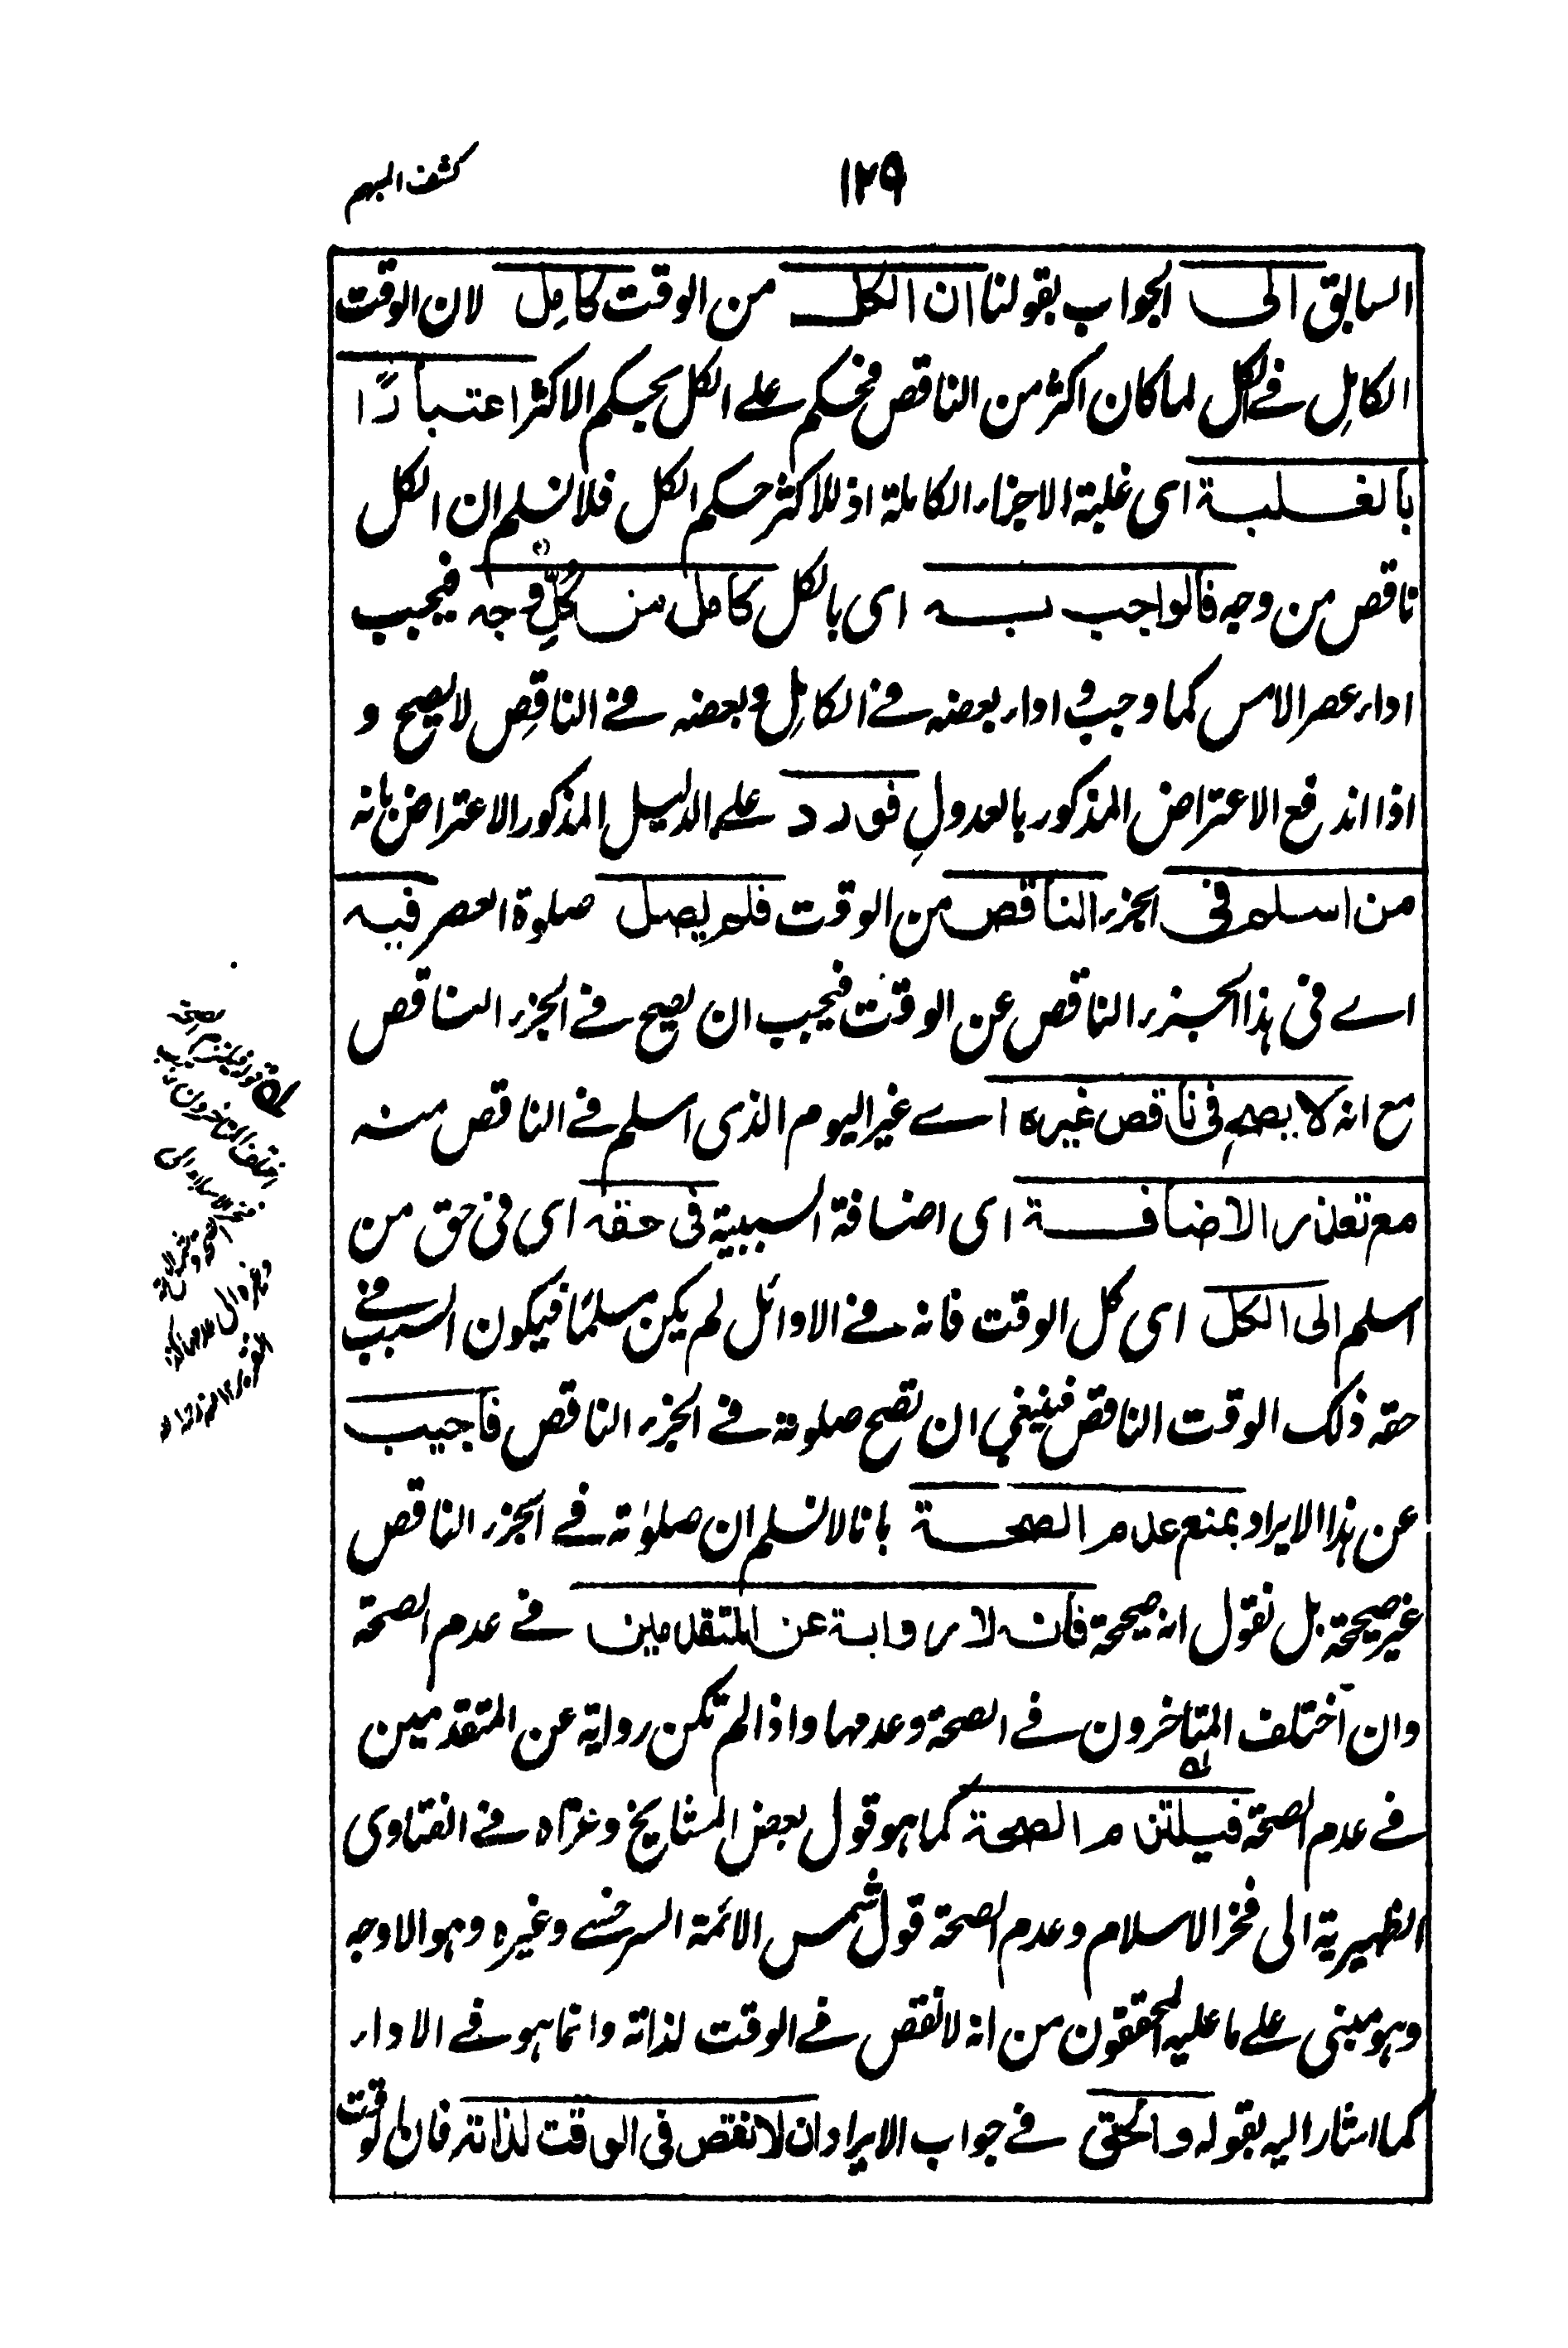 كشف المبهم
١٢٩
السابق الى الجواب بقولنا ان الكل من الوقت كامل لان الوقت
الكامل فے الكل لما كان اكثر من الناقص فحكم علے الكل بحكم الاكثر اعتبارًا
بالغلبة اى غلبة الاجزاء الكاملة اذ للاكثر حكم الكل فلا نسلم ان الكل
ناقص من وجه فالواجب به اى بالكل كامل من كُلِّ وجه فيجب
اداء عصر الامس كما وجب و اداء بعضه فے الكامل و بعضه فے الناقص لا يصح و
اذا اندفع الاعتراض المذكور بالعدول فورد علے الدليل المذكور الاعتراض بانه
من اسلم فى الجزء الناقص من الوقت فلم يصل صلوة العصر فيه
اے فى هذا الجزء الناقص عن الوقت فيجب ان يصح فے الجزء الناقص
مع انه لا يصح فى ناقص غيره اے غير اليوم الذى اسلم فے الناقص منه
مع تعذر الاضافة اى اضافة السببية فى حقه اى فى حق من
اسلم الى الكل اى كل الوقت فانه فے الاوائل لم يكن مسلمًا فيكون السبب فے
حقه ذلك الوقت الناقص فينبغي ان تصح صلوته فے الجزء الناقص فاجيب
عن هذا الايراد بمنع عدم الصحة بانا لا نسلم ان صلوٰته فے الجزء الناقص
غير صحيحة بل نقول انه صحيحة فانه لا رواية عن المتقدمين فے عدم الصحة
وان اختلف المتاخرون فے الصحة وعدمها واذا لم تكن رواية عن المتقدمين
فے عدم الصحة فيلتزم الصحة كما هو قول بعض المشايخ وعزاه فے الفتاوى
الظهيرية الى فخر الاسلام وعدم الصحة قول شمس الائمة السرخسے وغيره وهو الاوجه
وهو مبنى علے ما عليه المحققون من انه لا نقص فے الوقت لذاته وانما هو فے الاداء
كما اشار اليه بقوله والحق فے جواب الايراد ان لا نقص فى الوقت لذاته فان الوقت
قوله فيلتزم الصحة
اختلف المتاخرون